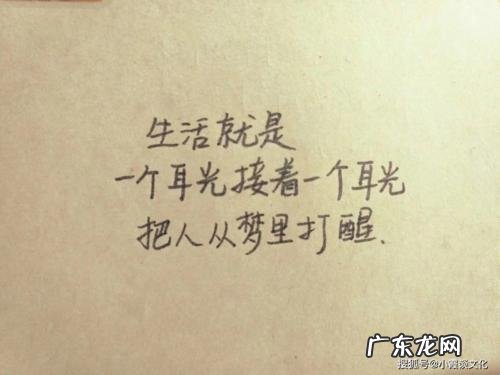 生活就是
一个耳光接着一个耳光
把人从梦里打醒.
广东龙网
搜狐号@小霞谈文化